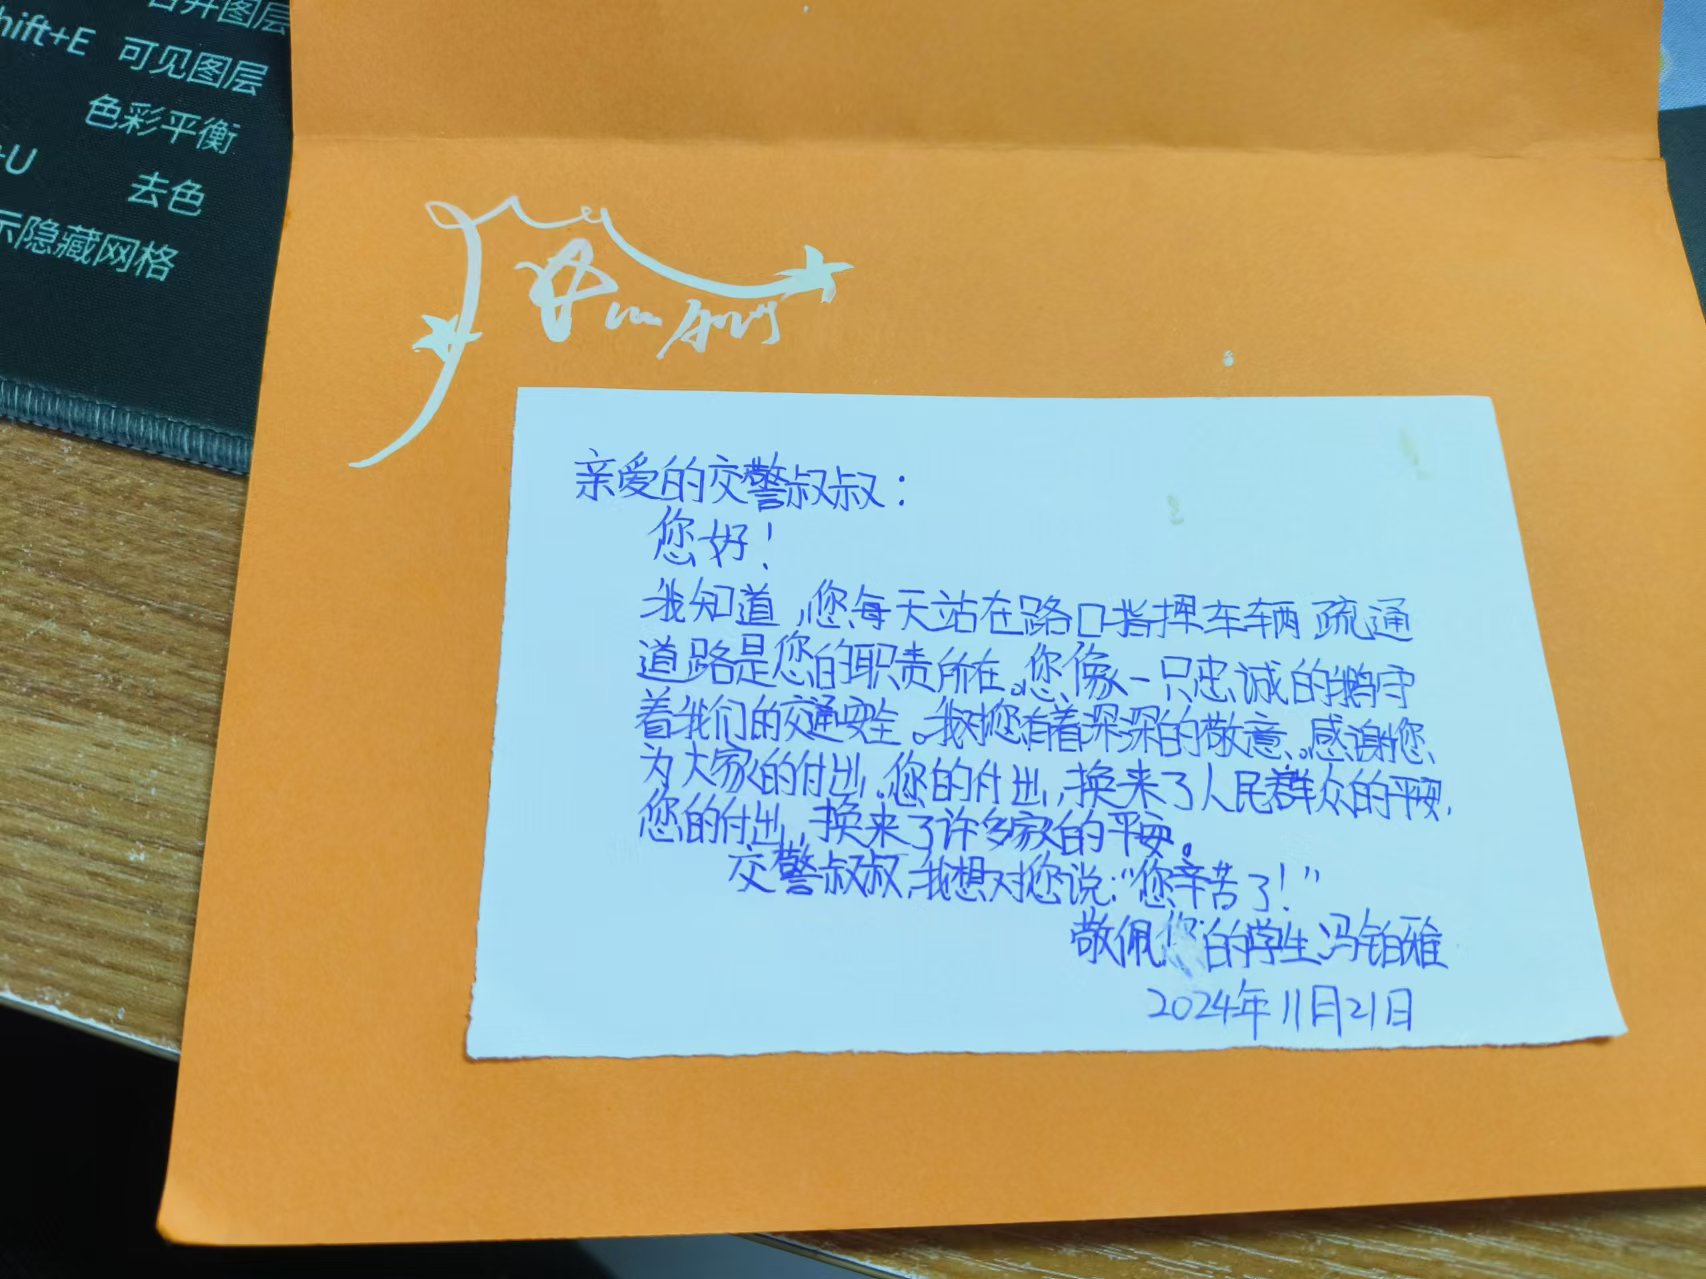 hift+E 可见图层
色彩平衡
+U 去色
示隐藏网格
亲爱的交警叔叔：
您好！
我知道，您每天站在路口指挥车辆 疏通
道路是您的职责所在。您像一只忠诚的鹅守
着我们的交通安全。我对您有着深深的敬意。感谢您
为大家的付出。您的付出，换来了人民群众的平安，
您的付出，换来了许多家的平安。
交警叔叔，我想对您说：“您辛苦了！”
敬佩您的学生冯铂雅
2024年11月21日